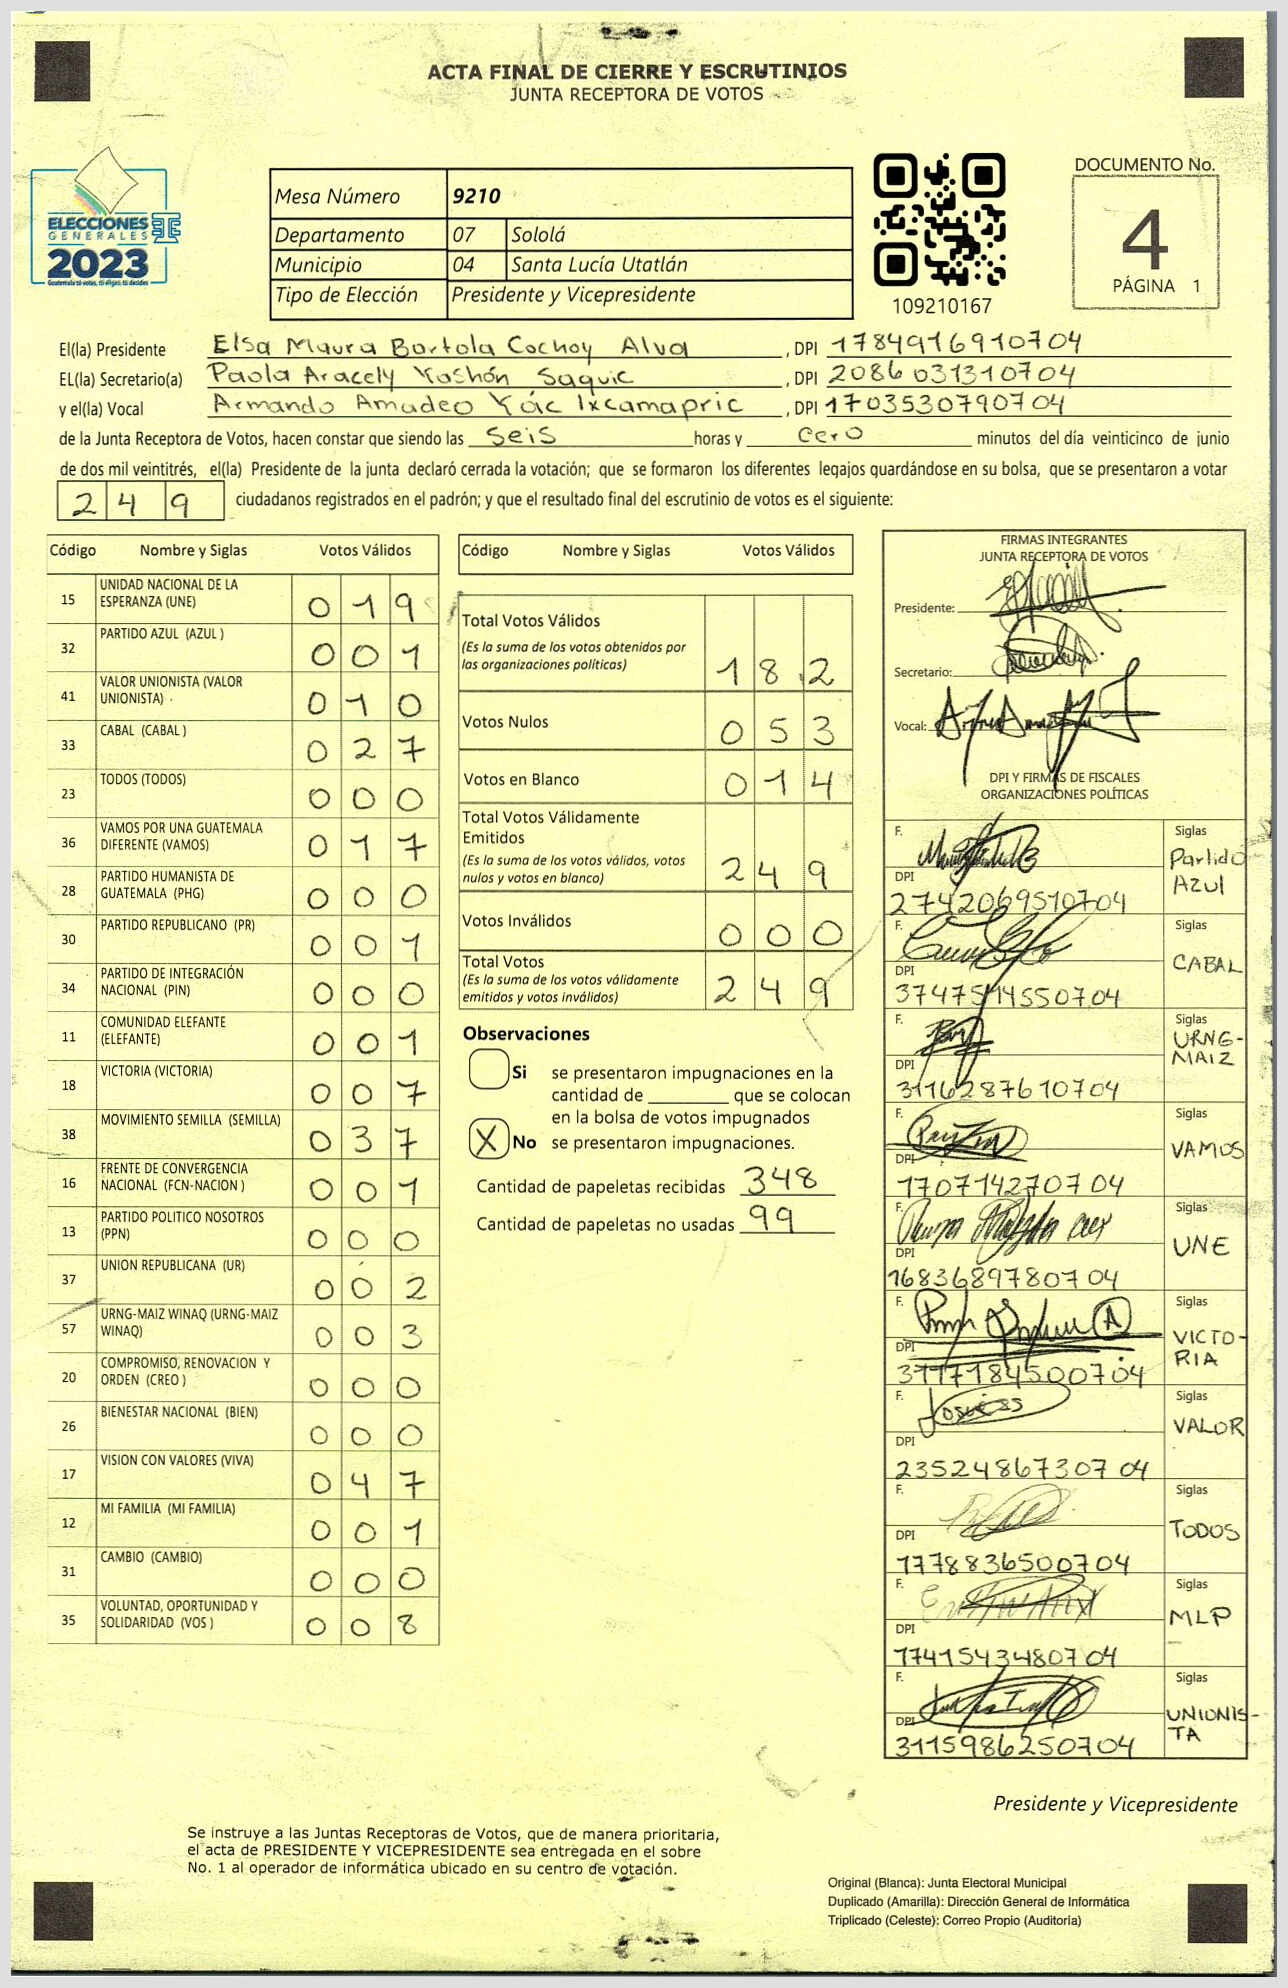 ACTA FINAL DE CIERRE Y ESCRUTINIOS
JUNTA RECEPTORA DE VOTOS
ELECCIONES
GENERALES
2023
Guatemala tú votas, tú eliges, tú decides
Mesa Número 9210
Departamento 07 Sololá
Municipio 04 Santa Lucía Utatlán
Tipo de Elección Presidente y Vicepresidente
109210167
DOCUMENTO No.
4
PÁGINA 1
El(la) Presidente Elsa Maura Bartola Cochoy Alva, DPI 1784916910704
EL(la) Secretario(a) Paola Aracely Yashón Saquic, DPI 2086031310704
y el(la) Vocal Armando Amadeo Yác Ixcamapric, DPI 1703530790704
de la Junta Receptora de Votos, hacen constar que siendo las seis horas y cero minutos del día veinticinco de junio
de dos mil veintitrés, el(la) Presidente de la junta declaró cerrada la votación; que se formaron los diferentes legajos guardándose en su bolsa, que se presentaron a votar
249 ciudadanos registrados en el padrón; y que el resultado final del escrutinio de votos es el siguiente:
Código Nombre y Siglas Votos Válidos
15 UNIDAD NACIONAL DE LA
ESPERANZA (UNE) 019
32 PARTIDO AZUL (AZUL ) 001
41 VALOR UNIONISTA (VALOR
UNIONISTA) 010
33 CABAL (CABAL ) 027
23 TODOS (TODOS) 000
36 VAMOS POR UNA GUATEMALA
DIFERENTE (VAMOS) 017
28 PARTIDO HUMANISTA DE
GUATEMALA (PHG) 000
30 PARTIDO REPUBLICANO (PR) 001
34 PARTIDO DE INTEGRACIÓN
NACIONAL (PIN) 000
11 COMUNIDAD ELEFANTE
(ELEFANTE) 001
18 VICTORIA (VICTORIA) 007
38 MOVIMIENTO SEMILLA (SEMILLA) 037
16 FRENTE DE CONVERGENCIA
NACIONAL (FCN-NACION ) 001
13 PARTIDO POLITICO NOSOTROS
(PPN) 000
37 UNION REPUBLICANA (UR) 002
57 URNG-MAIZ WINAQ (URNG-MAIZ
WINAQ) 003
20 COMPROMISO, RENOVACION Y
ORDEN (CREO ) 000
26 BIENESTAR NACIONAL (BIEN) 000
17 VISION CON VALORES (VIVA) 047
12 MI FAMILIA (MI FAMILIA) 001
31 CAMBIO (CAMBIO) 000
35 VOLUNTAD, OPORTUNIDAD Y
SOLIDARIDAD (VOS ) 008
Código Nombre y Siglas Votos Válidos
Total Votos Válidos
(Es la suma de los votos obtenidos por
las organizaciones políticas) 182
Votos Nulos 053
Votos en Blanco 014
Total Votos Válidamente
Emitidos
(Es la suma de los votos válidos, votos
nulos y votos en blanco) 249
Votos Inválidos 000
Total Votos
(Es la suma de los votos válidamente
emitidos y votos inválidos) 249
Observaciones
Si se presentaron impugnaciones en la
cantidad de ________ que se colocan
en la bolsa de votos impugnados
X No se presentaron impugnaciones.
Cantidad de papeletas recibidas 348
Cantidad de papeletas no usadas 99
FIRMAS INTEGRANTES
JUNTA RECEPTORA DE VOTOS
Presidente:
Secretario:
Vocal:
DPI Y FIRMAS DE FISCALES
ORGANIZACIONES POLÍTICAS
F. Siglas
Partido
Azul
DPI
2742069510704
F. Siglas
CABAL
DPI
3747514550704
F. Siglas
URNG-
MAIZ
DPI
3116287610704
F. Siglas
VAMOS
DPI
1707142707 04
F. Siglas
UNE
DPI
1683689780704
F. Siglas
VICTO-
RIA
DPI
3117184500704
F. Siglas
VALOR
DPI
2352486730704
F. Siglas
TODOS
DPI
1778836500704
F. Siglas
MLP
DPI
1741543480704
F. Siglas
UNIONIS-
TA
DPI
3115986250704
Presidente y Vicepresidente
Se instruye a las Juntas Receptoras de Votos, que de manera prioritaria,
el acta de PRESIDENTE Y VICEPRESIDENTE sea entregada en el sobre
No. 1 al operador de informática ubicado en su centro de votación.
Original (Blanca): Junta Electoral Municipal
Duplicado (Amarilla): Dirección General de Informática
Triplicado (Celeste): Correo Propio (Auditoría)